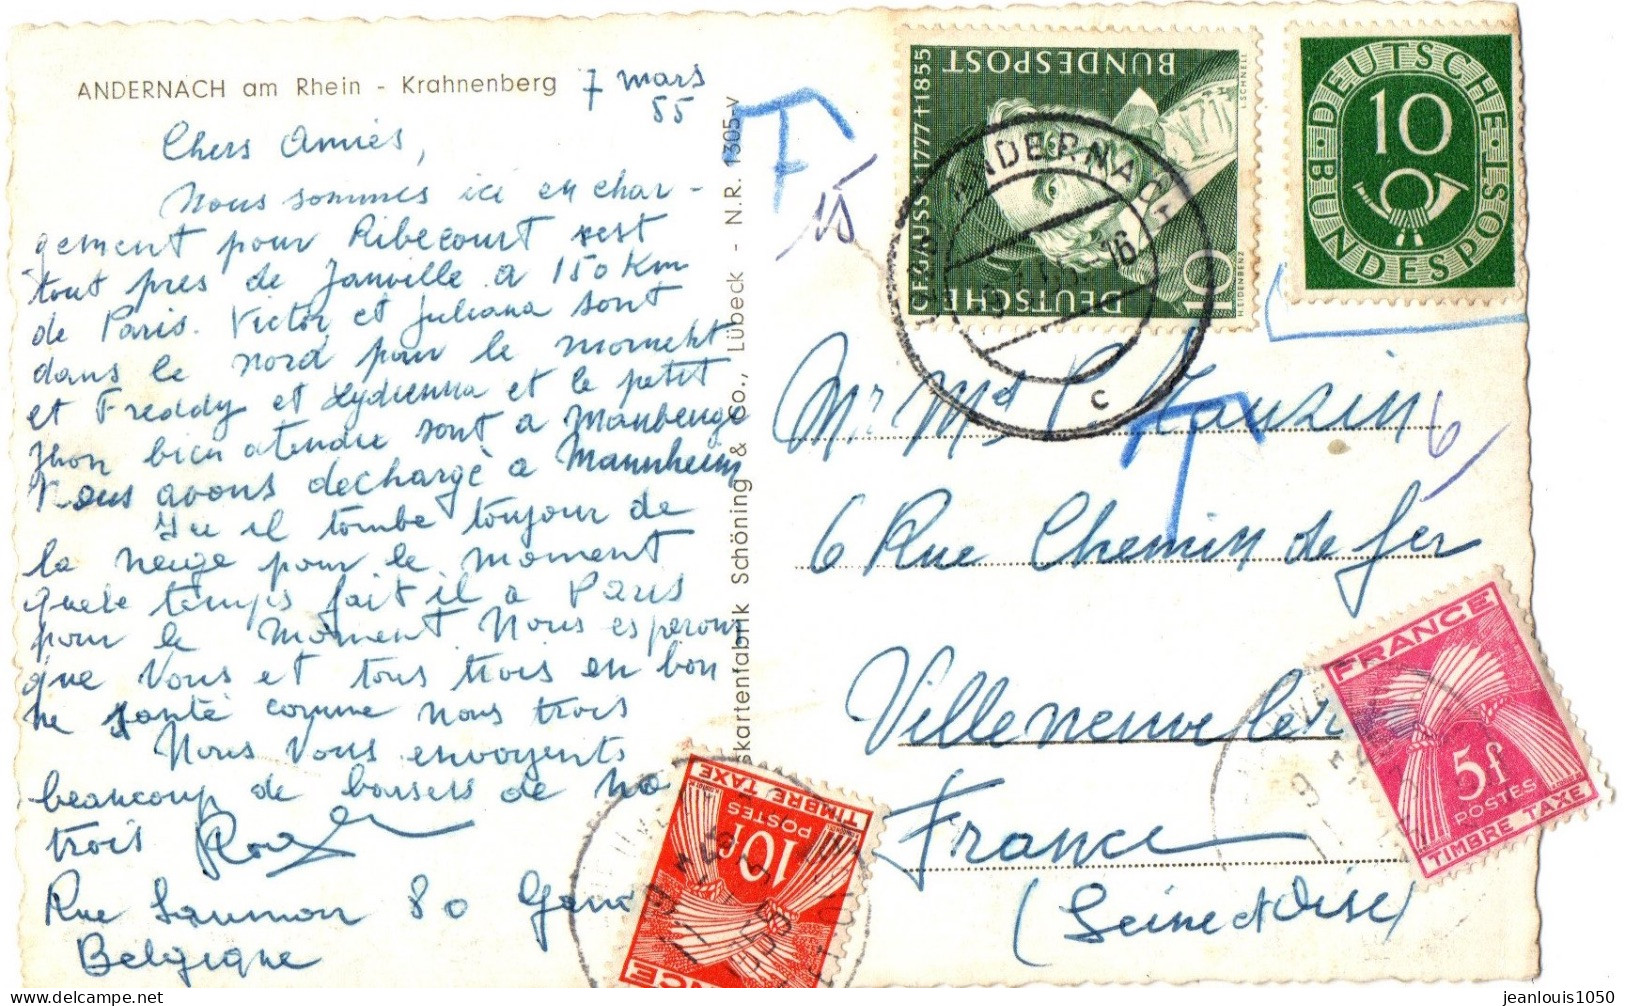 ANDERNACH am Rhein - Krahnenberg
7 mars
55
Chers Amiés,
Nous sommes ici en char-
gement pour Ribecourt sest
tout pres de Janville a 150 Km
de Paris. Victor et Juliana sont
dans le nord pour le moment
et Freddy et Lydienna et le petit
Jhon bien atendu sont a Maubeuge
Nous avons decharge a Mannheim
Ici il tombe toujour de
la neige pour le moment
quele temps fait il a Paris
pour le moment Nous esperons
que Vous et tous trois en bon
ne santé comme nous trois
Nous Vous envoyents
beaucoup de baisers de No
trois
Rue Saumon 80 Gand
Belgique
skartenfabrik Schöning & Co., Lübeck - N.R. 1305-v
T
15
CF GAUSS * 1777 † 1855
DEUTSCHE
BUNDESPOST
10
H. HEIDENBRENZ
I. SCHNELL
ANDERNACH
16
c
DEUTSCHE
BUNDESPOST
10
Mr Md
T
6
6 Rue Chemin de fer
Villeneuve le
France
(Seine et Oise)
FRANCE
5f
POSTES
TIMBRE TAXE
TIMBRE TAXE
POSTES
10f
FRANCE
jeanlouis1050